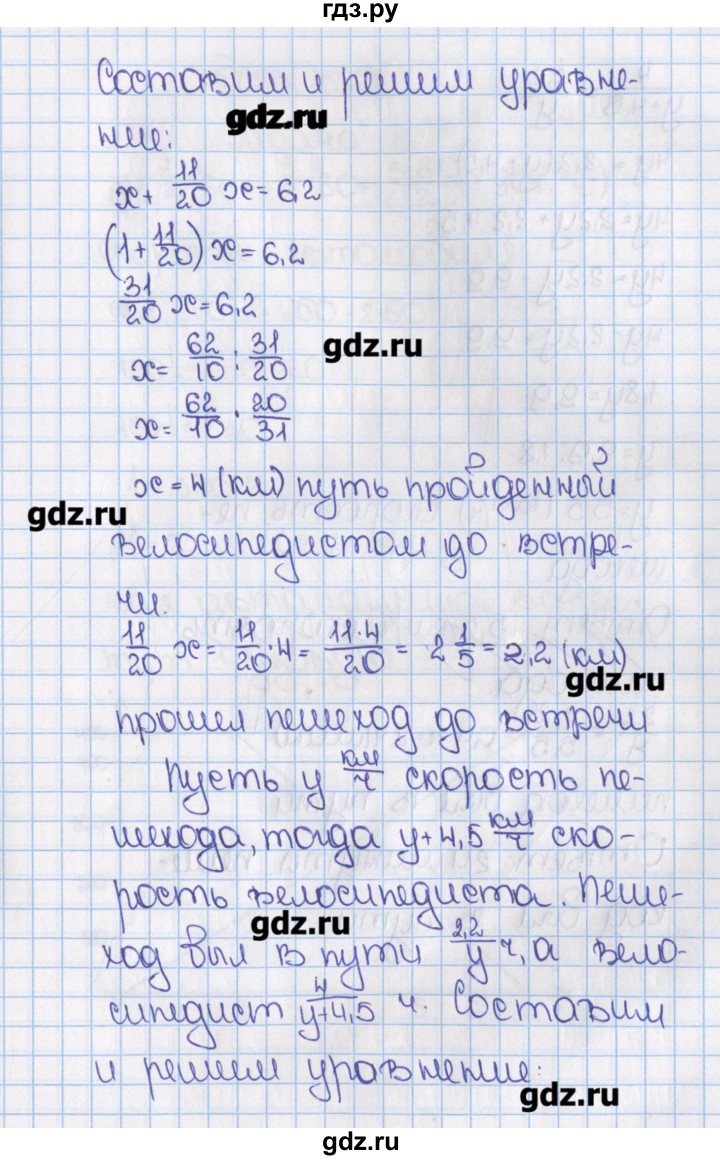 гдз.ру
Составим и решим уравне-
ние:
gdz.ru
x + 11/20 x = 6,2
(1 + 11/20) x = 6,2
31/20 x = 6,2
x = 62/10 : 31/20
gdz.ru
x = 62/10 · 20/31
x = 4 (км) путь пройденный
gdz.ru
велосипедистом до встре-
чи.
11/20 x = 11/20 · 4 = 11·4/20 = 2 1/5 = 2,2 (км)
gdz.ru
прошел пешеход до встречи
Пусть y км/ч скорость пе-
шехода, тогда y+4,5 км/ч ско-
рость велосипедиста. Пеше-
gdz.ru
ход был в пути 2,2/y ч, а вело-
сипедист 4/y+4,5 ч. Составим
и решим уравнение:
gdz.ru
gdz.ru